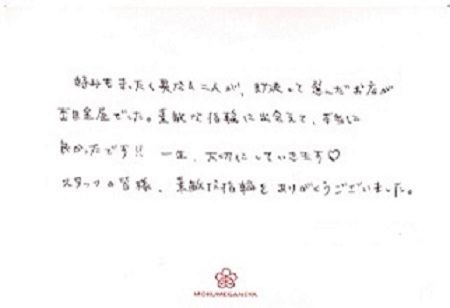 好みもまったく異なる二人が、即決して選んだお店が
杢目金屋でした。素敵な指輪に出会えて、本当に
良かったです!! 一生、大切にしていきます♡
スタッフの皆様、素敵な指輪をありがとうございました。
MOKUMEGANEYA